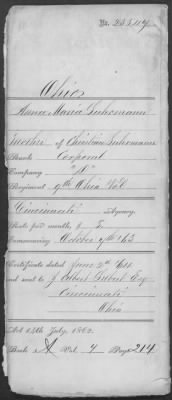 No. 
Ohio
Anna Maria Suhrmann
Mother of Christian Suhrmann
Rank Corporal
Company "A"
Regiment 9th Ohio Vol
Cincinnati Agency.
Rate per month, $
Commencing October 9th 1863
Certificate dated June 2nd
and sent to J Egbert Esq
Cincinnati
Ohio
Act 14th July, 1862.
Book A Vol. 4 Page 214